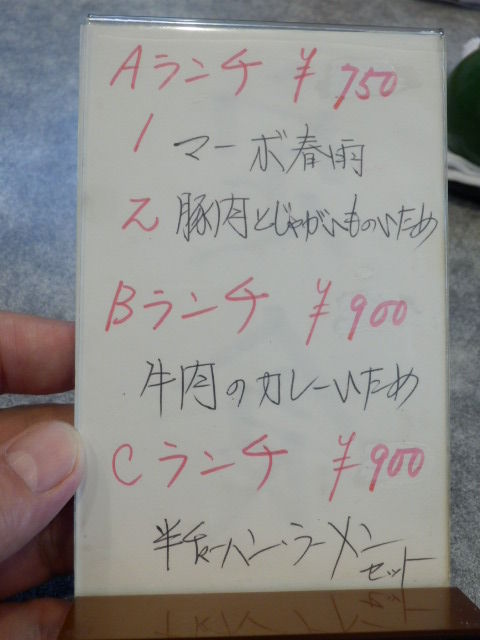 Aランチ ¥750
1 マーボ春雨
2 豚肉とじゃがいものいため
Bランチ ¥900
牛肉のカレーいため
Cランチ ¥900
半チャーハン・ラーメン
セット